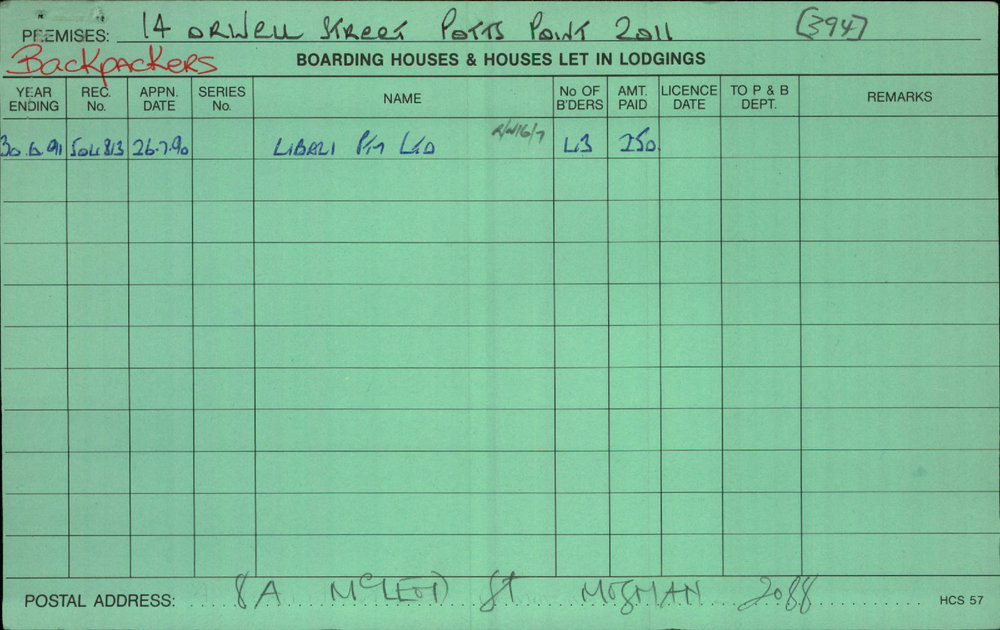 PREMISES: 14 ORWELL STREET POTTS POINT 2011 (394)
Backpackers
BOARDING HOUSES & HOUSES LET IN LODGINGS
YEAR ENDING REC. No. APPN. DATE SERIES No. NAME No OF B'DERS AMT. PAID LICENCE DATE TO P & B DEPT. REMARKS
30.6.91 504813 26.7.90 LIBALI Pty LTD 43 250
POSTAL ADDRESS: 8A McLEOD St MOSMAN 2088
HCS 57